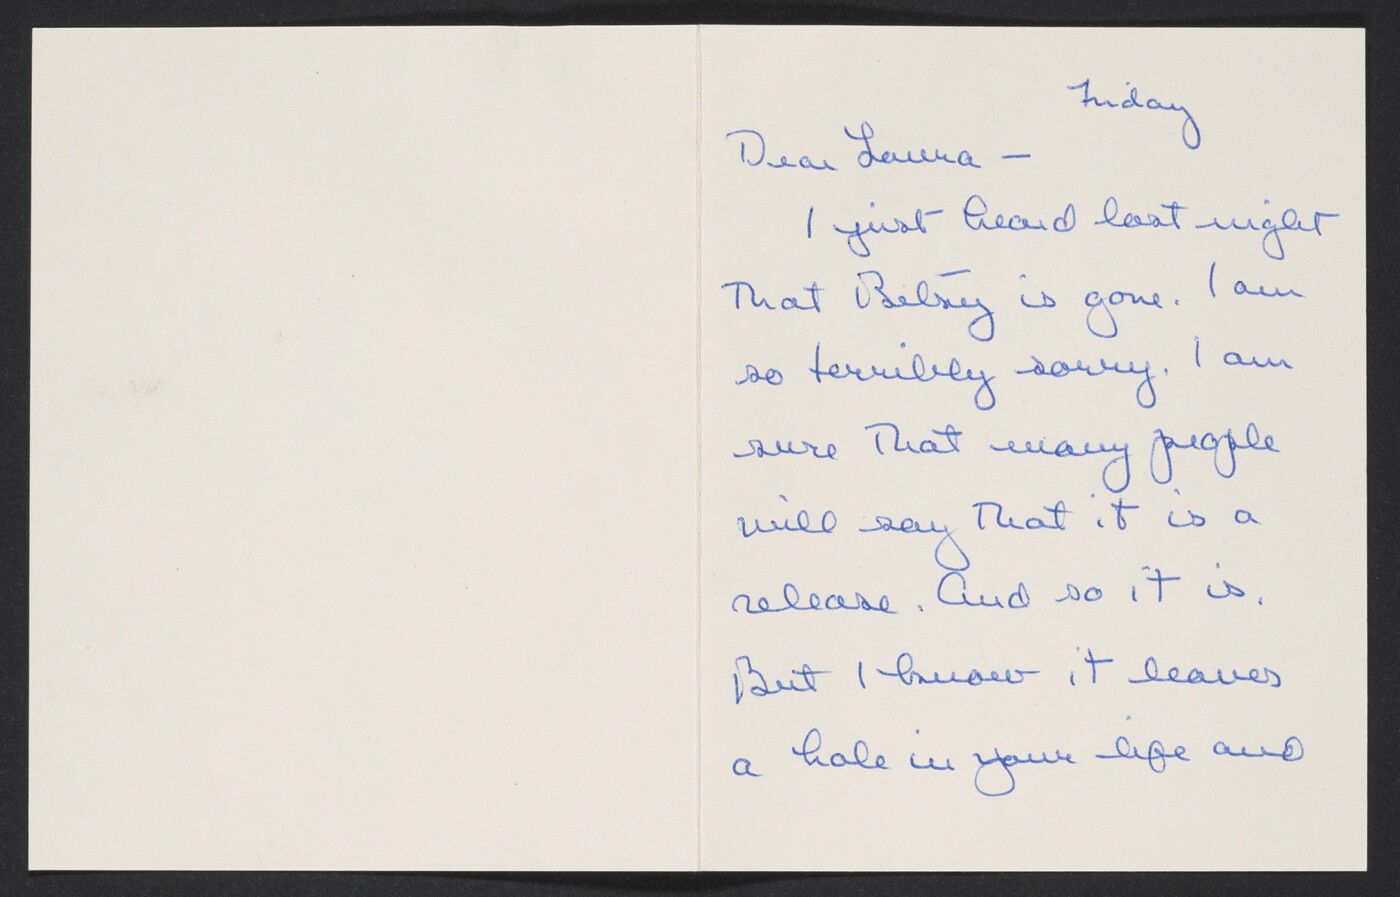 Friday
Dear Laura —
I just heard last night
that Betsy is gone. I am
so terribly sorry. I am
sure that many people
will say that it is a
release. And so it is.
But I know it leaves
a hole in your life and